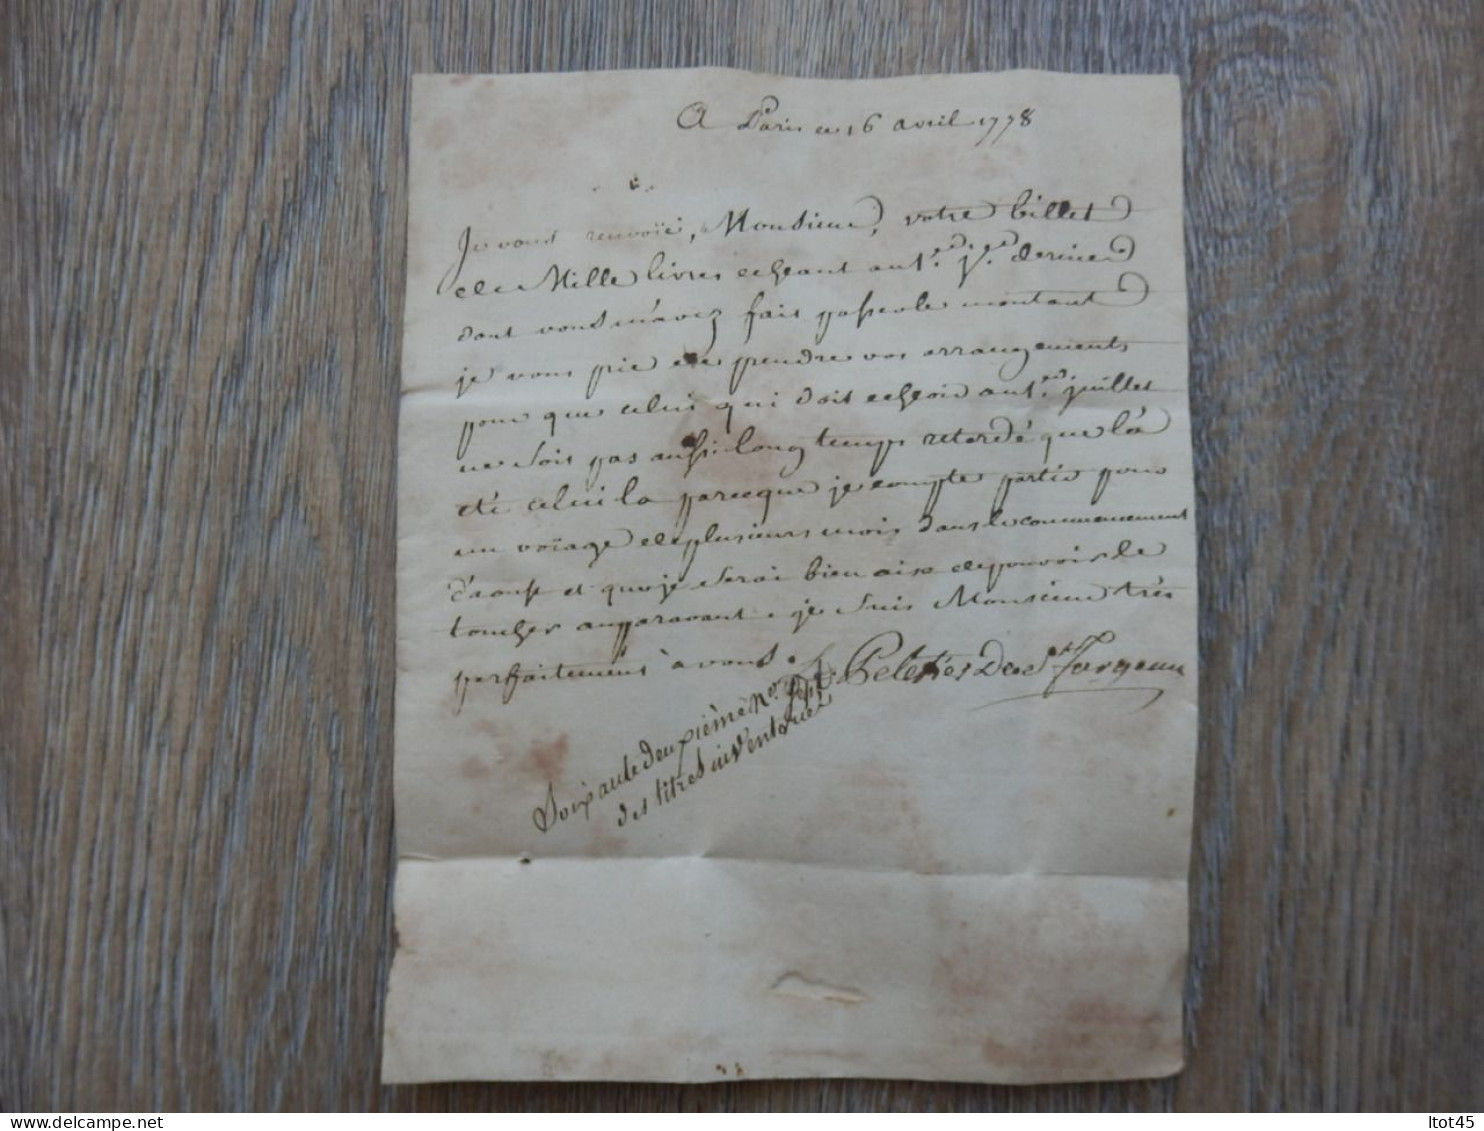 A Paris ce 16 avril 1778
Je vous renvoïe, Monsieur, votre billet
de Mille livres echeant au 1er. jer. dernier
dont vous m'avez fait passer le montant
je vous prie de prendre vos arrangements
pour que celui qui doit echeoir au 1er. juillet
ne soit pas aussi longtemps retardé que l'a
eté celui la parceque je compte partir pour
un voïage de plusieurs mois dans le commencement
d'aoust et que je serai bien aise de pouvoir le
toucher auparavant. je suis Monsieur très
parfaitement à vous Le Peletier De St fargeau
Soixante deuxième
des titres inventoriés
ltot45